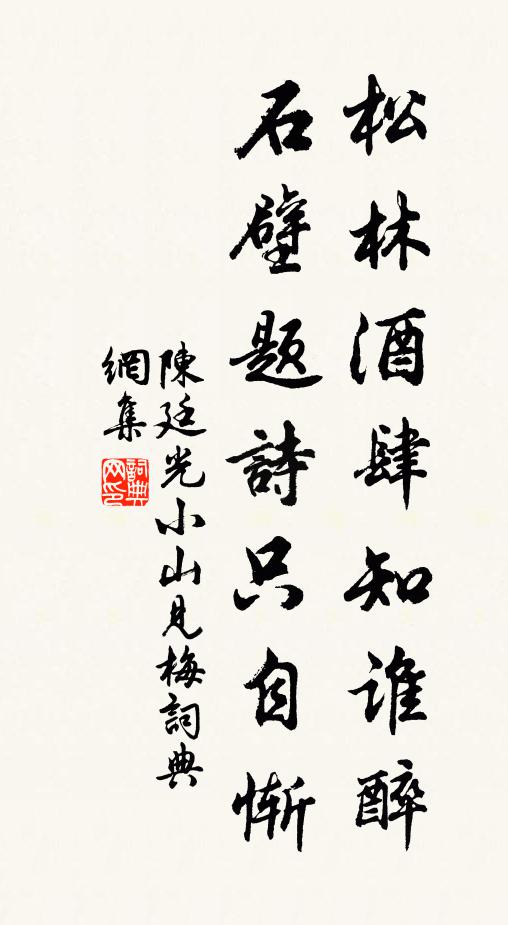 松林酒肆知谁醉
石壁题詩只自慚
陳廷光小山見梅詞典
網集
詞典網印